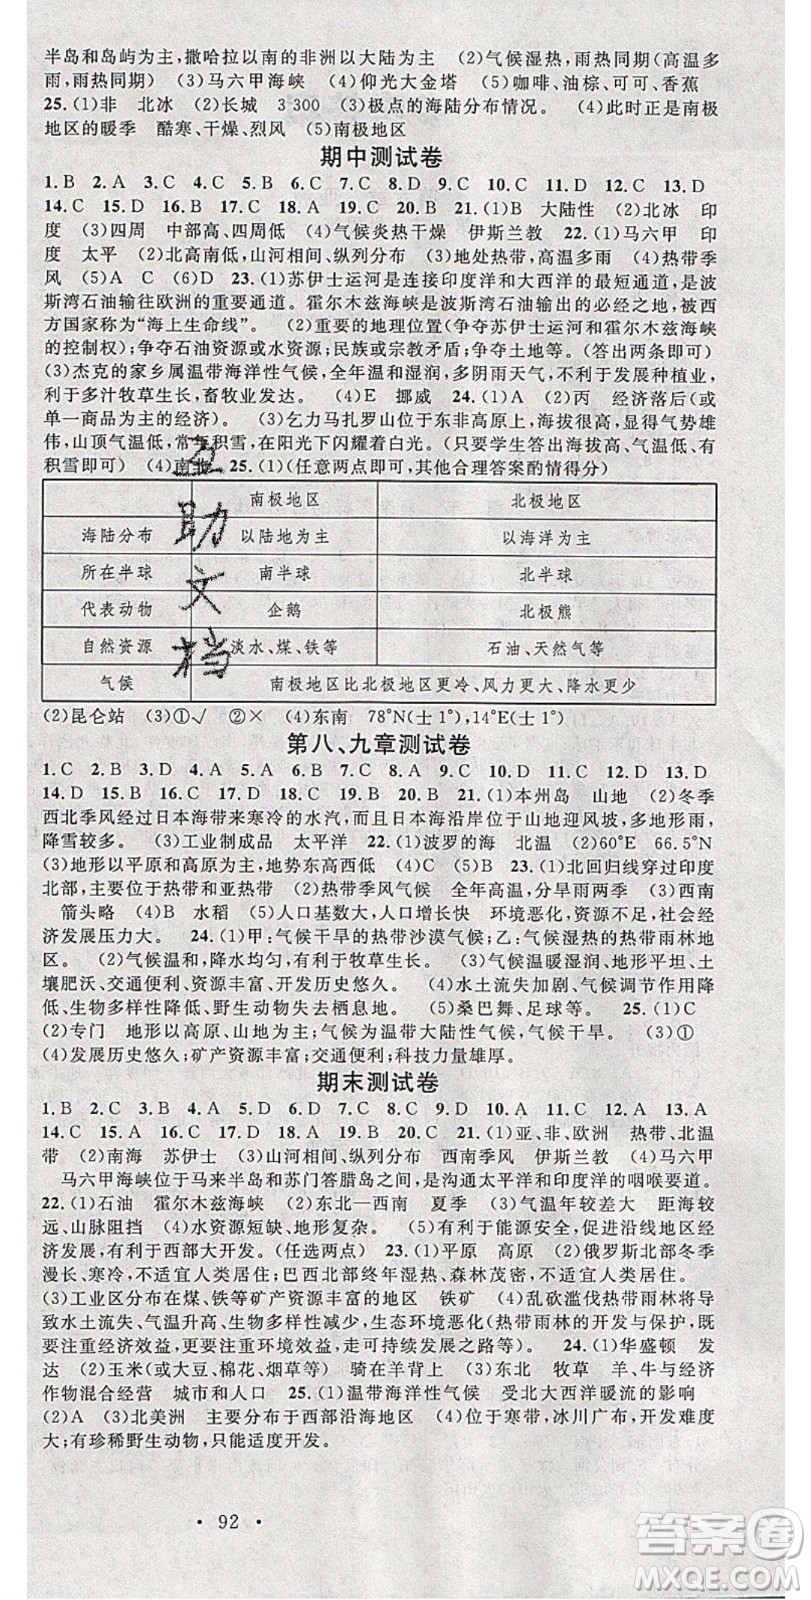 半岛和岛屿为主,撒哈拉以南的非洲以大陆为主　(2)气候湿热,雨热同期(高温多
雨,雨热同期)　(3)马六甲海峡　(4)仰光大金塔　(5)咖啡、油棕、可可、香蕉
25.(1)非　北冰　(2)长城　3 300　(3)极点的海陆分布情况。　(4)此时正是南极
地区的暖季　酷寒、干燥、烈风　(5)南极地区
期中测试卷
1.B　2.A　3.C　4.C　5.C　6.B　7.C　8.D　9.D　10.B　11.C　12.C　13.D
14.C　15.D　16.B　17.C　18.A　19.C　20.B　21.(1)B　大陆性　(2)北冰　印
度　(3)四周　中部高、四周低　(4)气候炎热干燥　伊斯兰教　22.(1)马六甲　印
度　太平　(2)北高南低,山河相间、纵列分布　(3)地处热带,高温多雨　(4)热带季
风　(5)A　C　(6)D　23.(1)苏伊士运河是连接印度洋和大西洋的最短通道,是波
斯湾石油输往欧洲的重要通道。霍尔木兹海峡是波斯湾石油输出的必经之地,被西
方国家称为“海上生命线”。　(2)重要的地理位置(争夺苏伊士运河和霍尔木兹海峡
的控制权);争夺石油资源或水资源;民族或宗教矛盾;争夺土地等。(答出两条即可)
(3)杰克的家乡属温带海洋性气候,全年温和湿润,多阴天,光照不足,不宜发展种植业,
有利于多汁牧草生长,畜牧业发达。　(4)E　挪威　24.(1)D　(2)丙　经济落后(或
单一商品为主的经济)。　(3)乞力马扎罗山位于东非高原上,海拔很高,显得气势雄
伟,山顶气温低,常年积雪,在阳光下闪耀着白光。(只要学生答出海拔高、气温低、有
积雪即可)　(4)南北　25.(1)(任意两点即可,其他合理答案酌情得分)
南极地区　北极地区
海陆分布　以陆地为主　以海洋为主
所在半球　南半球　北半球
代表动物　企鹅　北极熊
自然资源　淡水、煤、铁等　石油、天然气等
气候　南极地区比北极地区更冷、风力更大、降水更少
(2)昆仑站　(3)①√　②×　(4)东南　78°N(士 1°),14°E(士 1°)
第八、九章测试卷
1.C　2.B　3.D　4.A　5.C　6.C　7.B　8.A　9.D　10.B　11.C　12.D　13.D
14.D　15.D　16.A　17.C　18.D　19.A　20.A　21.(1)本州岛　山地　(2)冬季
西北季风经过日本海带来寒冷的水汽,而且日本海沿岸位于山地迎风坡,多地形雨,
降雪较多。　(3)工业制成品　太平洋　22.(1)波罗的海　北温　(2)60°E　66.5°N
(3)地形以平原和高原为主,地势东高西低　(4)C　(5)B　23.(1)北回归线穿过印度
北部,主要位于热带和亚热带　(2)热带季风气候　全年高温,分旱雨两季　(3)西南
箭头略　(4)B　水稻　(5)人口基数大,人口增长快　环境恶化,资源不足,社会经
济发展压力大。　24.(1)甲:气候干旱的热带沙漠气候;乙:气候湿热的热带雨林地
区。　(2)气候温和,降水均匀,有利于牧草生长。　(3)气候温暖湿润、地形平坦、土
壤肥沃、交通便利、资源丰富、开发历史悠久。　(4)水土流失加剧、气候调节作用降
低、生物多样性降低、野生动物失去栖息地。　(5)桑巴舞、足球等。　25.(1)C
(2)专门　地形以高原、山地为主;气候为温带大陆性气候,气候干旱。　(3)①
(4)发展历史悠久;矿产资源丰富;交通便利;科技力量雄厚。
期末测试卷
1.B　2.C　3.A　4.C　5.D　6.B　7.C　8.D　9.D　10.A　11.C　12.A　13.A
14.B　15.C　16.A　17.D　18.C　19.D　20.C　21.(1)亚、非、欧洲　热带、北温
带　(2)南海　苏伊士　(3)山河相间、纵列分布　西南季风　伊斯兰教　(4)马六甲
马六甲海峡位于马来半岛和苏门答腊岛之间,是沟通太平洋和印度洋的咽喉要道。
22.(1)石油　霍尔木兹海峡　(2)东北—西南　夏季　(3)气温年较差大　距海较
远、山脉阻挡　(4)水资源短缺、地形复杂。　(5)有利于能源安全,促进沿线地区经
济发展,有利于西部大开发。(任选两点)　23.(1)平原　高原　(2)俄罗斯北部冬季
漫长、寒冷,不适宜人类居住;巴西北部终年湿热、森林茂密,不适宜人类居住。
(3)工业区分布在煤、铁等矿产资源丰富的地区　铁矿　(4)乱砍滥伐热带雨林将导
致水土流失、气温升高、生物多样性减少,生态环境恶化(热带雨林的开发与保护,既
要注重经济效益,更要注重环境效益,走可持续发展之路等)。　24.(1)华盛顿　发
达　(2)玉米(或大豆、棉花、烟草等)　骑行在羊背上　(3)东北　牧草　羊、牛与经济
作物混合经营　城市和人口　25.(1)温带海洋性气候　受北大西洋暖流的影响
(2)A　(3)北美洲　主要分布于西部沿海地区　(4)位于寒带,冰川广布,开发难度
大;有珍稀野生动物,只能适度开发。
· 92 ·
互助文档
答案圈
MXQE.COM